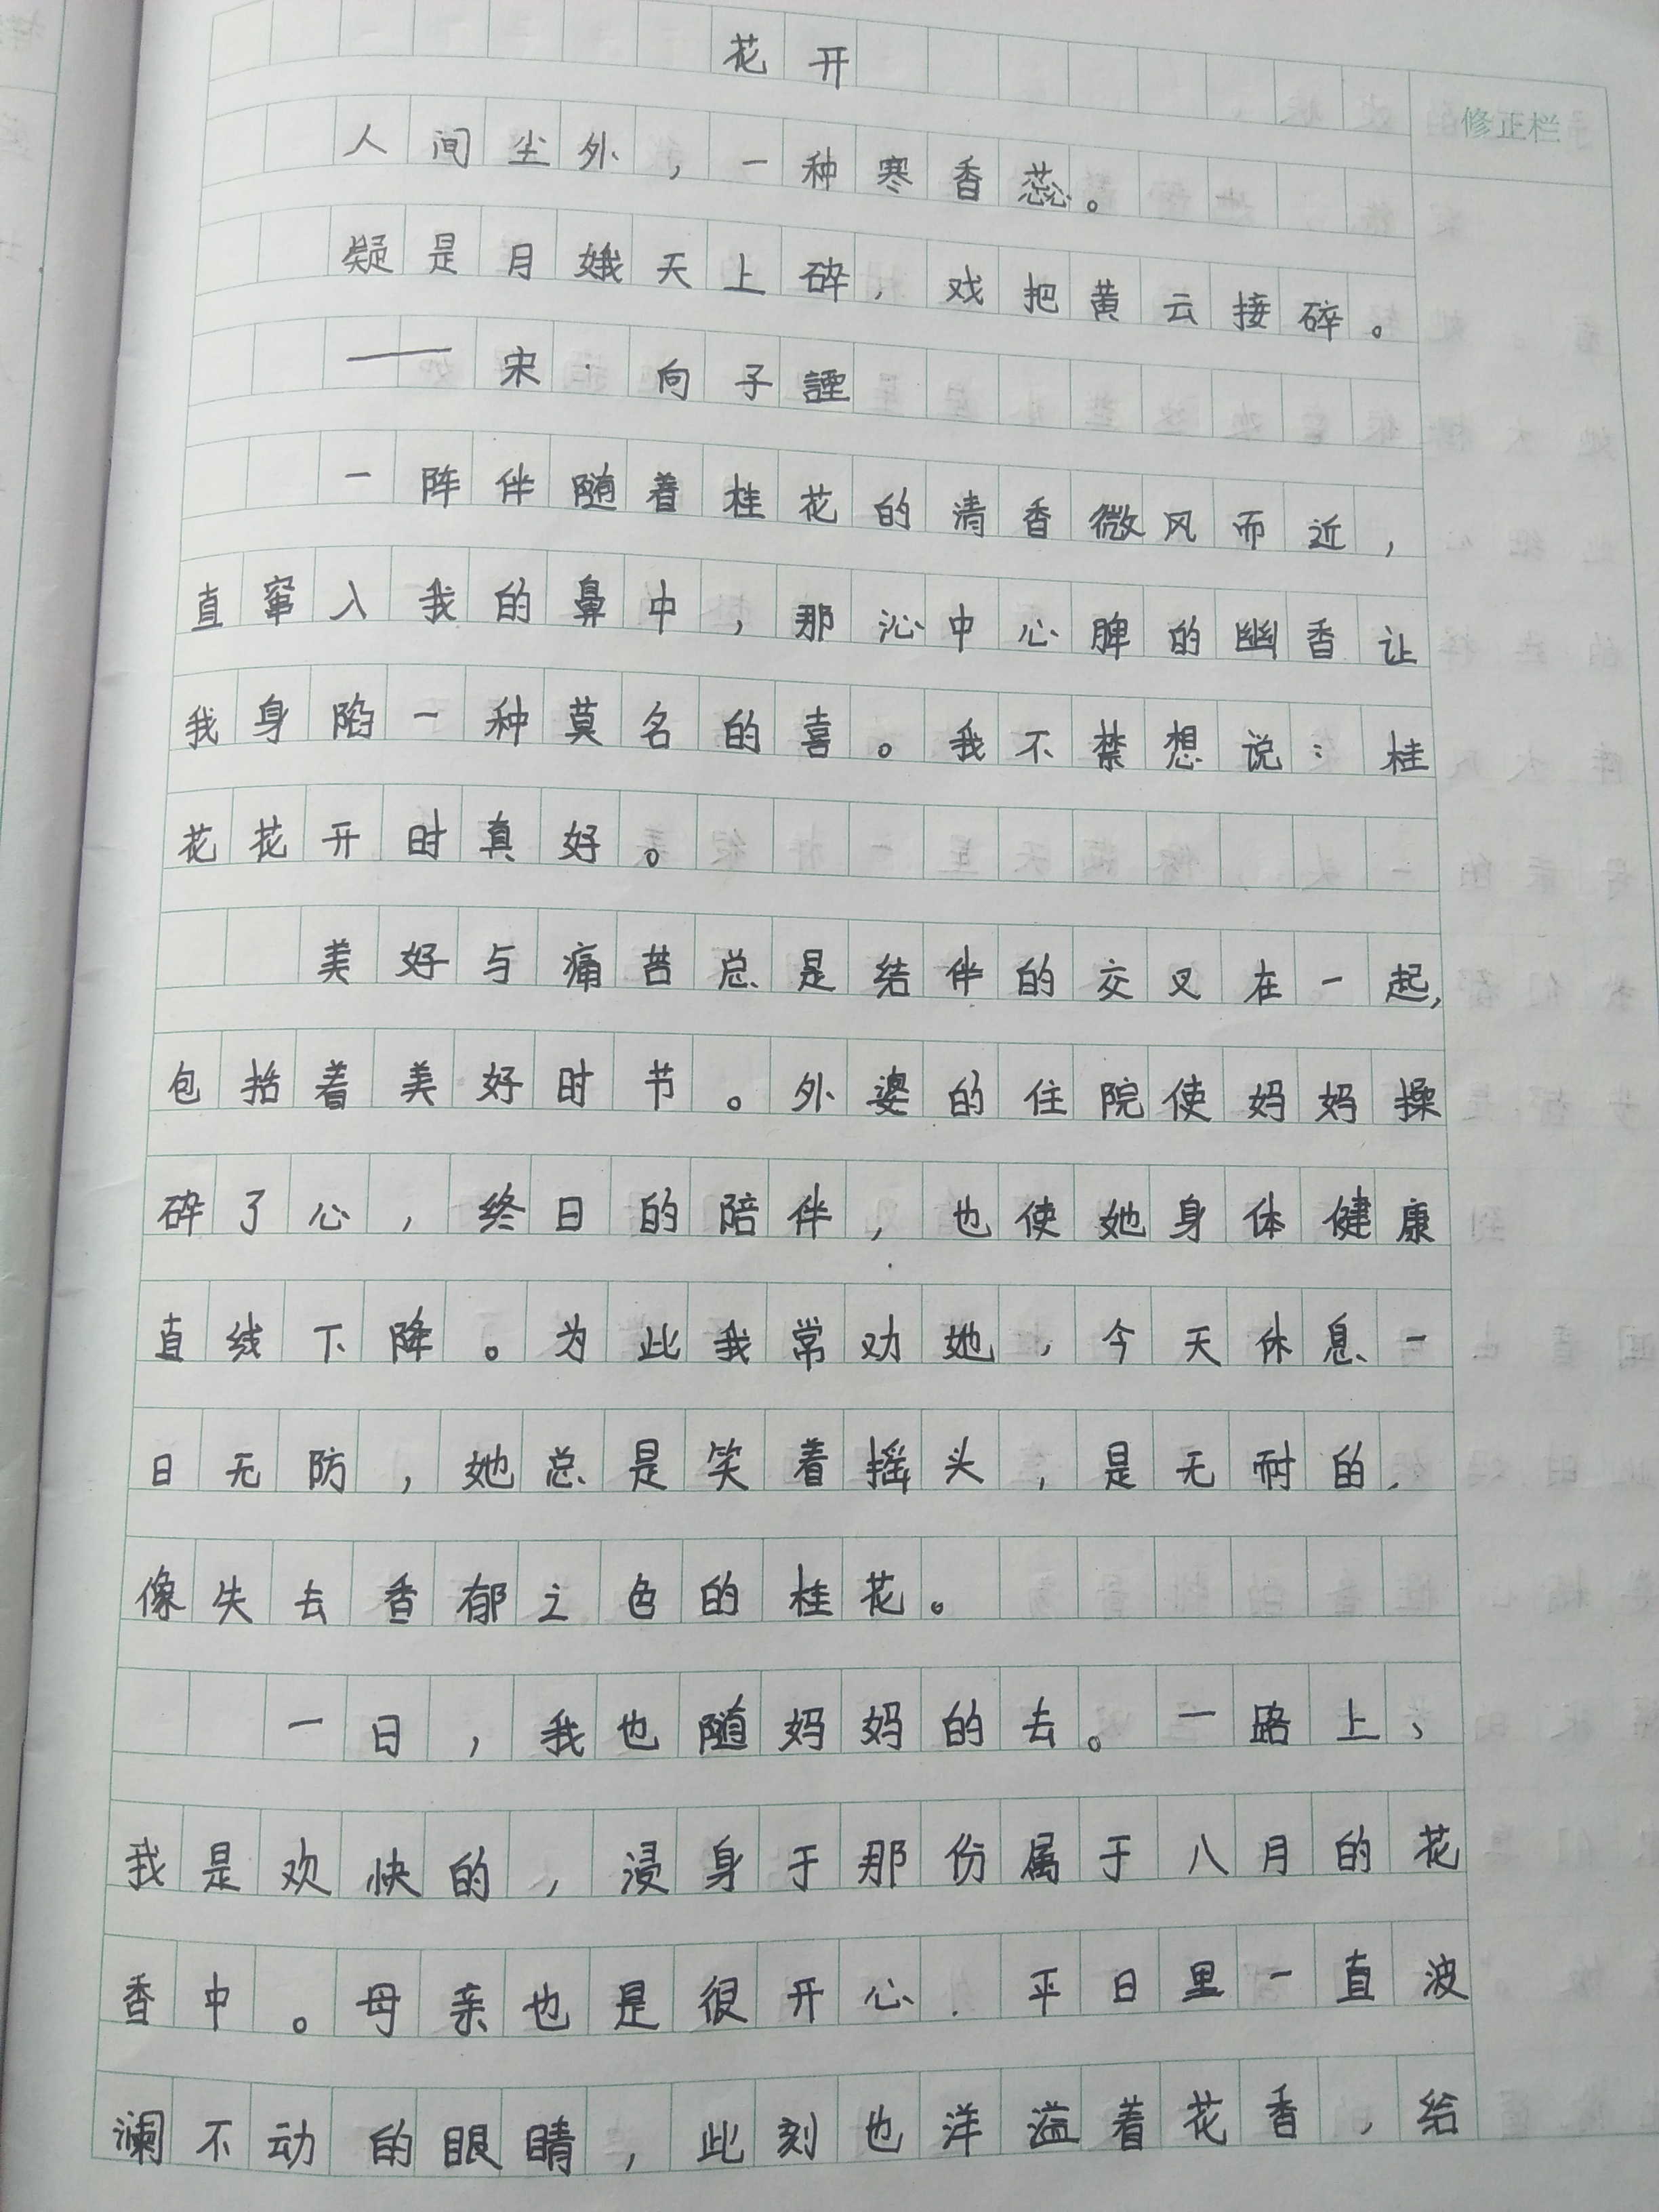 花开
修正栏
人间尘外，一种寒香蕊。
疑是月娥天上碎，戏把黄云接碎。
——宋·向子諲
一阵伴随着桂花的清香微风而近，
直窜入我的鼻中，那沁中心脾的幽香让
我身陷一种莫名的喜。我不禁想说：桂
花花开时真好。
美好与痛苦总是结伴的交叉在一起，
包括着美好时节。外婆的住院使妈妈操
碎了心，终日的陪伴，也使她身体健康
直线下降。为此我常劝她，今天休息一
日无防，她总是笑着摇头，是无耐的，
像失去香郁之色的桂花。
一日，我也随妈妈的去。一路上，
我是欢快的，浸身于那份属于八月的花
香中。母亲也是很开心．平日里一直波
澜不动的眼睛，此刻也洋溢着花香，给